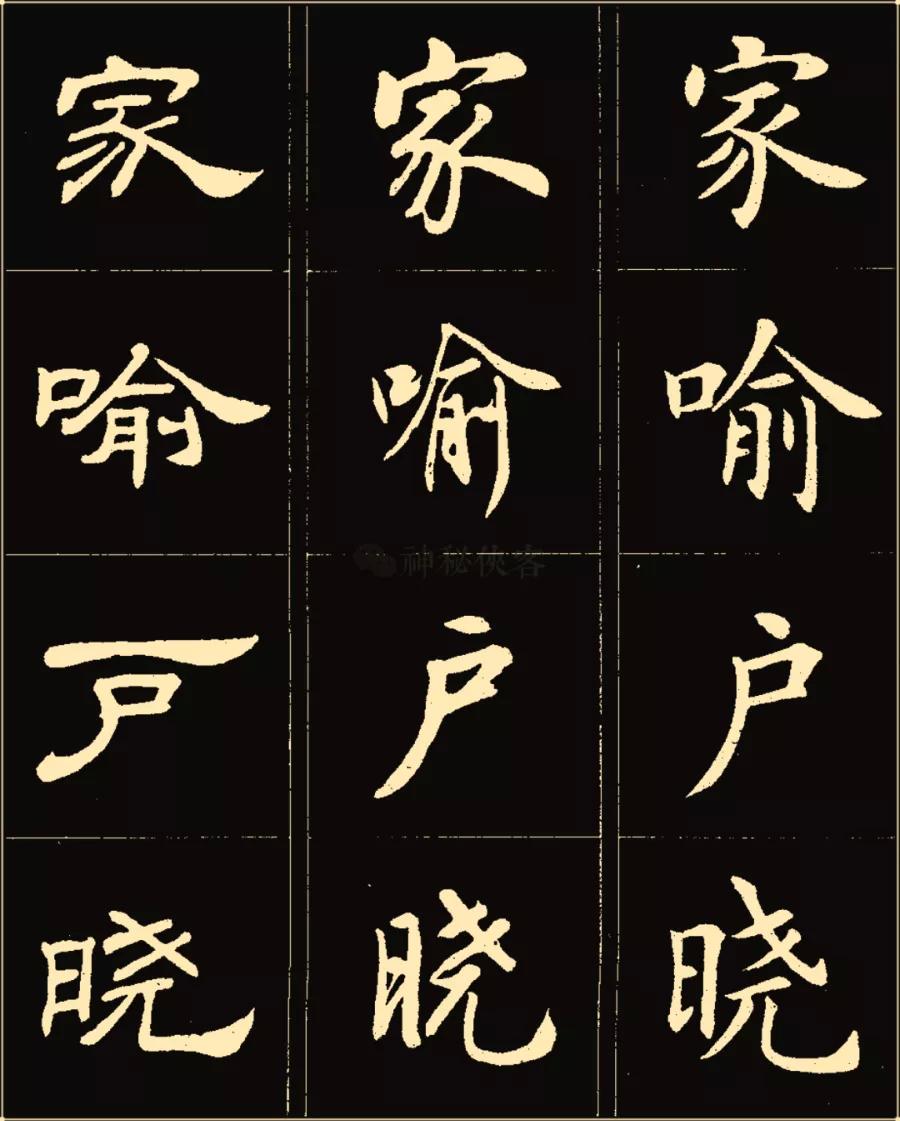 家 家 家
喻 喻 喻
户 户 户
神秘侠客
晓 晓 晓